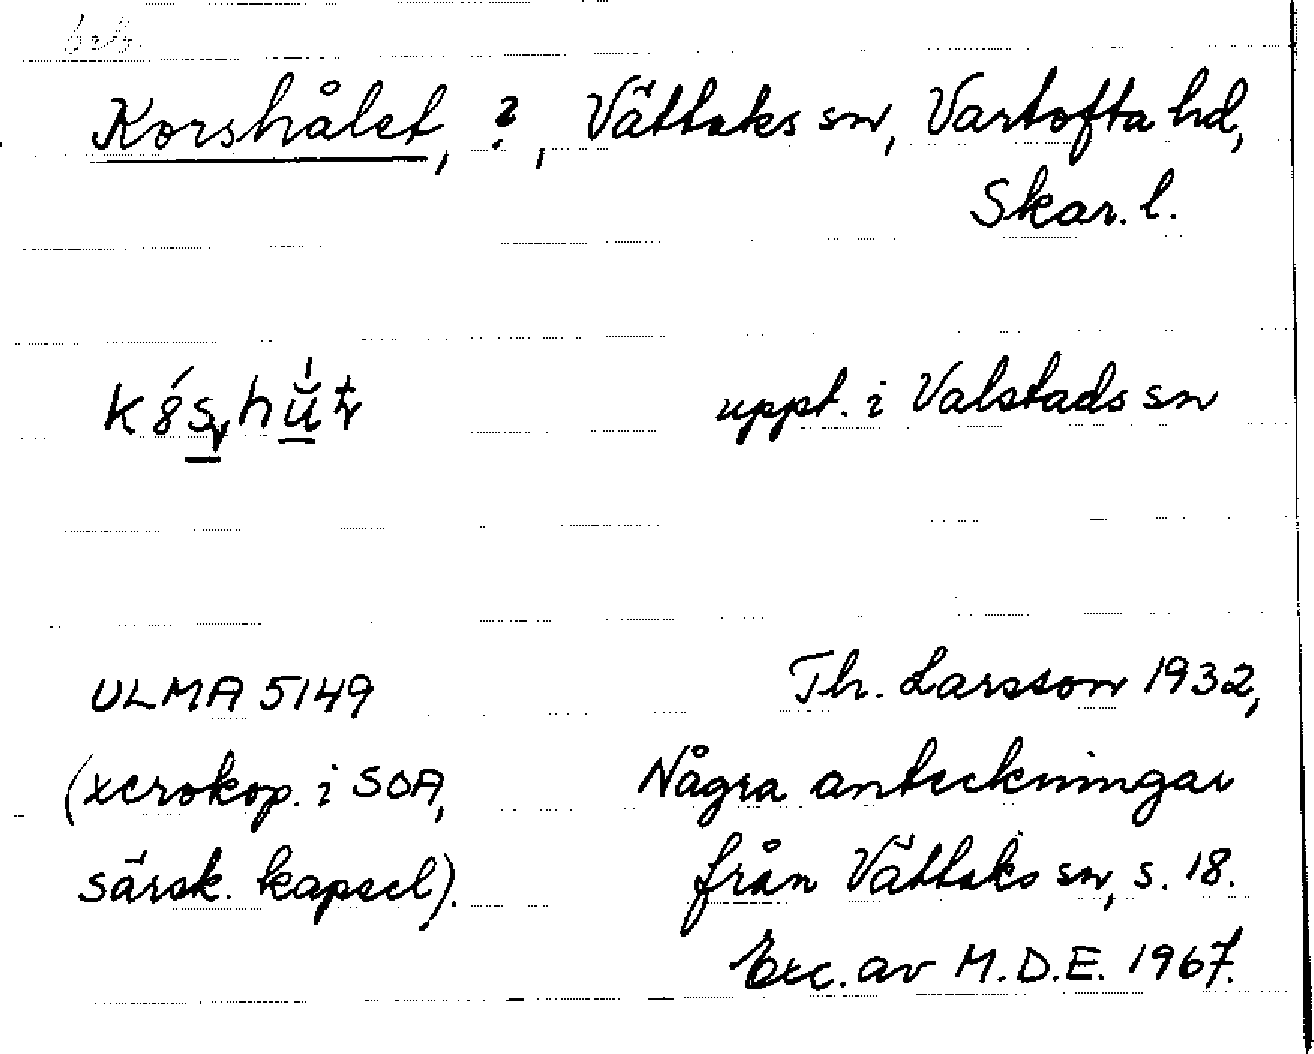 beb.
Korshålet, ?, Vättaks sn, Vartofta hd,
Skar. l.
uppt. i Valstads sn
ULMA 5149
Th. Larsson 1932,
(xerokop. i SOA,
Några anteckningar
särsk. kapsel).
från Vättaks sn, s. 18.
Exc. av M.D.E. 1967.